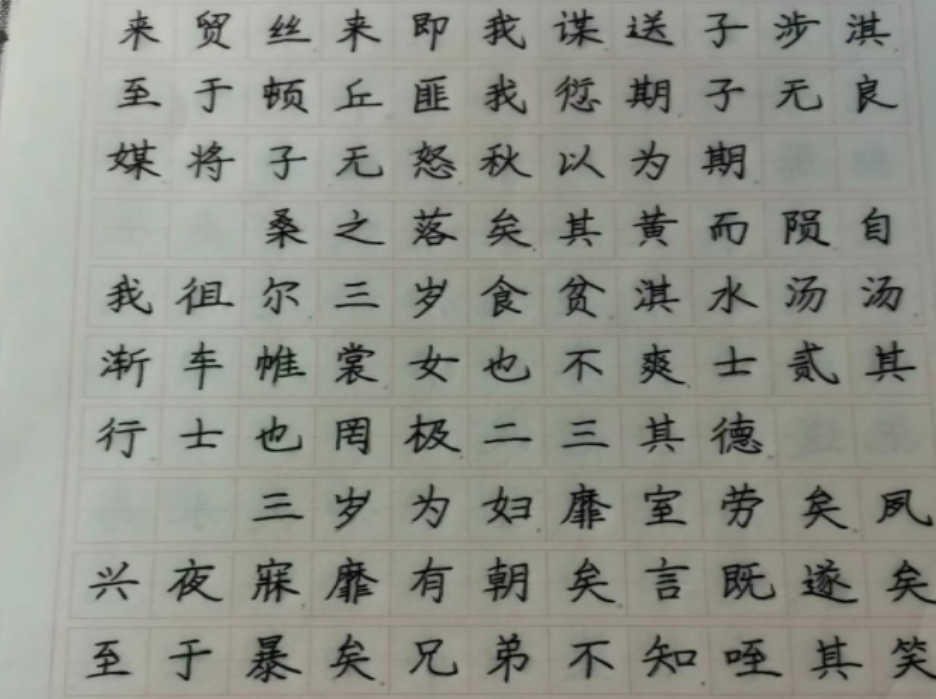 来贸丝来即我谋送子涉淇
至于顿丘匪我愆期子无良
媒将子无怒秋以为期
桑之落矣其黄而陨自
我徂尔三岁食贫淇水汤汤
渐车帷裳女也不爽士贰其
行士也罔极二三其德
三岁为妇靡室劳矣夙
兴夜寐靡有朝矣言既遂矣
至于暴矣兄弟不知咥其笑